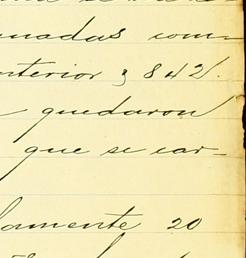 nadas com-
nterior 3842.
quedaron
que se car-
lamente 20